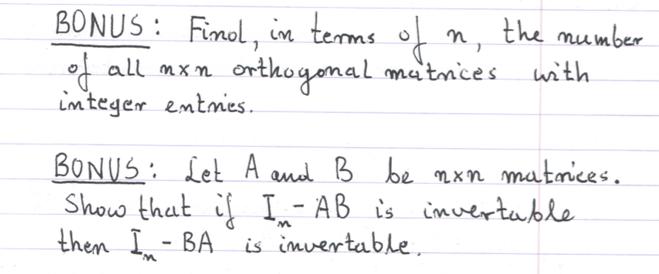 BONUS: Find, in terms of n, the number
of all nxn orthogonal matrices with
integer entries.
BONUS: Let A and B be nxn matrices.
Show that if Iₙ - AB is invertable
then Iₙ - BA is invertable.